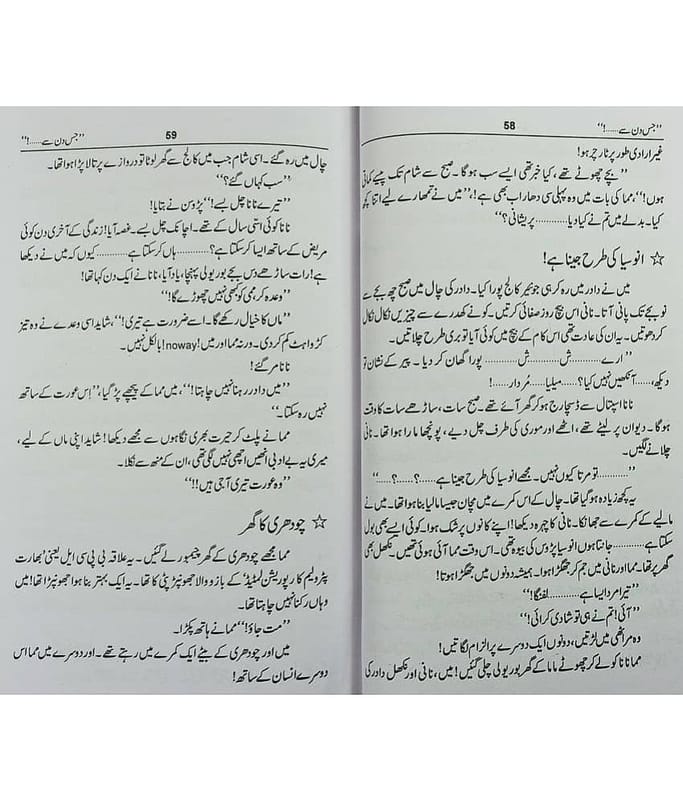 58
’’جس دن سے......!‘‘
غیر ارادی طور پر ٹارچر ہو!
’’بچے چھوٹے تھے، کیا خبر تھی ایسے سب ہوگا۔ صبح سے شام تک پیسے کماتی
ہوں!‘‘، مما کی بات میں وہ پہلی سی دھار اب بھی ہے!، ’’میں نے تمھارے لیے اتنا کچھ
کیا۔ بدلے میں تم نے کیا دیا............ پریشانی؟‘‘
☆ انوسیا کی طرح جینا ہے!
میں نے دادر میں رہ کر ہی جونیئر کالج پورا کیا۔ دادر کی چال میں صبح چھ بجے سے
نو بجے تک پانی آتا۔ نانی اس بیچ روز صفائی کرتیں۔ کونے کھدرے سے چیزیں نکال نکال
کر دھوتیں۔ یہ ان کی عادت تھی اس کام کے بیچ میں کوئی آیا تو بری طرح چلاتیں۔
’’ارے............ ش............ ش............ پورا گھان کر دیا۔ پیر کے نشان تو
دیکھ،............ آنکھیں نہیں کیا؟...... میلیا...... مُردار......!
نانا اسپتال سے ڈسچارج ہو کر گھر آئے تھے۔ صبح سات، ساڑھے سات کا وقت
ہوگا۔ دیوان پر لیٹے تھے، اٹھے اور موری کی طرف چل دیے، پونچھا مارا ہوا تھا۔ نانی
چلانے لگیں۔
’’............ تو مرتا کیوں نہیں۔ مجھے انوسیا کی طرح جینا ہے............؟......؟......‘‘
یہ کچھ زیادہ ہو گیا تھا۔ چال کے اس کمرے میں مچان جیسا مالیا بنا ہوا تھا۔ میں نے
مالیے کے کمرے سے جھانکا۔ نانی کا چہرہ دیکھا! اپنے کانوں پر شک ہوا کوئی ایسے بھی بول
سکتا ہے............ جانتا ہوں انوسیا پڑوس کی بیوہ تھی۔ اس وقت مما آئی ہوئی تھیں۔ نکھل بھی
گھر پر تھا۔ مما اور نانی میں جم کر جھگڑا ہوا۔ ہمیشہ دونوں میں جھگڑا ہوتا!
’’تیرا مرد ایسا ہے............ لفنگا!‘‘
’’آئی! تم نے ہی تو شادی کرائی!‘‘
وہ مراٹھی میں لڑتیں، دونوں ایک دوسرے پر الزام لگاتیں!
مما نانا کو لے کر چھوٹے ماما کے گھر بوریولی چلی گئیں! میں، نانی اور نکھل دادر کی
59
’’جس دن سے......!‘‘
چال میں رہ گئے۔ اسی شام جب میں کالج سے گھر لوٹا تو دروازے پر تالا پڑا ہوا تھا۔
’’سب کہاں گئے؟‘‘
’’تیرے نانا چل بسے!‘‘ پڑوسن نے بتایا!
نانا کوئی اسّی سال کے تھے۔ اچانک چل بسے۔ غصہ آیا! زندگی کے آخری دن کوئی
مریض کے ساتھ ایسا کر سکتا ہے؟............ ہاں کر سکتا ہے............ کیوں کہ میں نے دیکھا
ہے! رات ساڑھے دس بجے بوریولی پہنچا، یاد آیا، نانا نے ایک دن کہا تھا!
’’وعدہ کر ممی کو کبھی نہیں چھوڑے گا!‘‘
’’ماں کا خیال رکھے گا۔ اسے ضرورت ہے تیری!‘‘، شاید اسی وعدے نے وہ تیز
کڑواہٹ کم کر دی۔ ورنہ مما اور میں! noway! بالکل نہیں۔
نانا مر گئے!
’’میں دادر رہنا نہیں چاہتا!‘‘، میں مما کے پیچھے پڑ گیا، ’’اِس عورت کے ساتھ
نہیں رہ سکتا۔‘‘
ممانے پلٹ کر حیرت بھری نگاہوں سے مجھے دیکھا! شاید اپنی ماں کے لیے،
میری یہ بے ادبی انھیں اچھی نہیں لگی تھی، ان کے منھ سے نکلا۔
’’وہ عورت تیری آجی ہیں!!‘‘
☆ چودھری کا گھر
مما مجھے چودھری کے گھر چیمبور لے گئیں۔ یہ علاقہ بی پی سی ایل یعنی ’بھارت
پٹرولیم کارپوریشن لمیٹڈ‘ کے بازو والا جھونپڑپٹی کا تھا۔ یہ ایک بہتر بنا ہوا جھونپڑا تھا! میں
وہاں رکنا نہیں چاہتا تھا۔
’’مت جاؤ!‘‘ ممانے ہاتھ پکڑا۔
میں اور چودھری کے بیٹے ایک کمرے میں رہتے تھے۔ اور دوسرے میں مما اس
دوسرے انسان کے ساتھ!